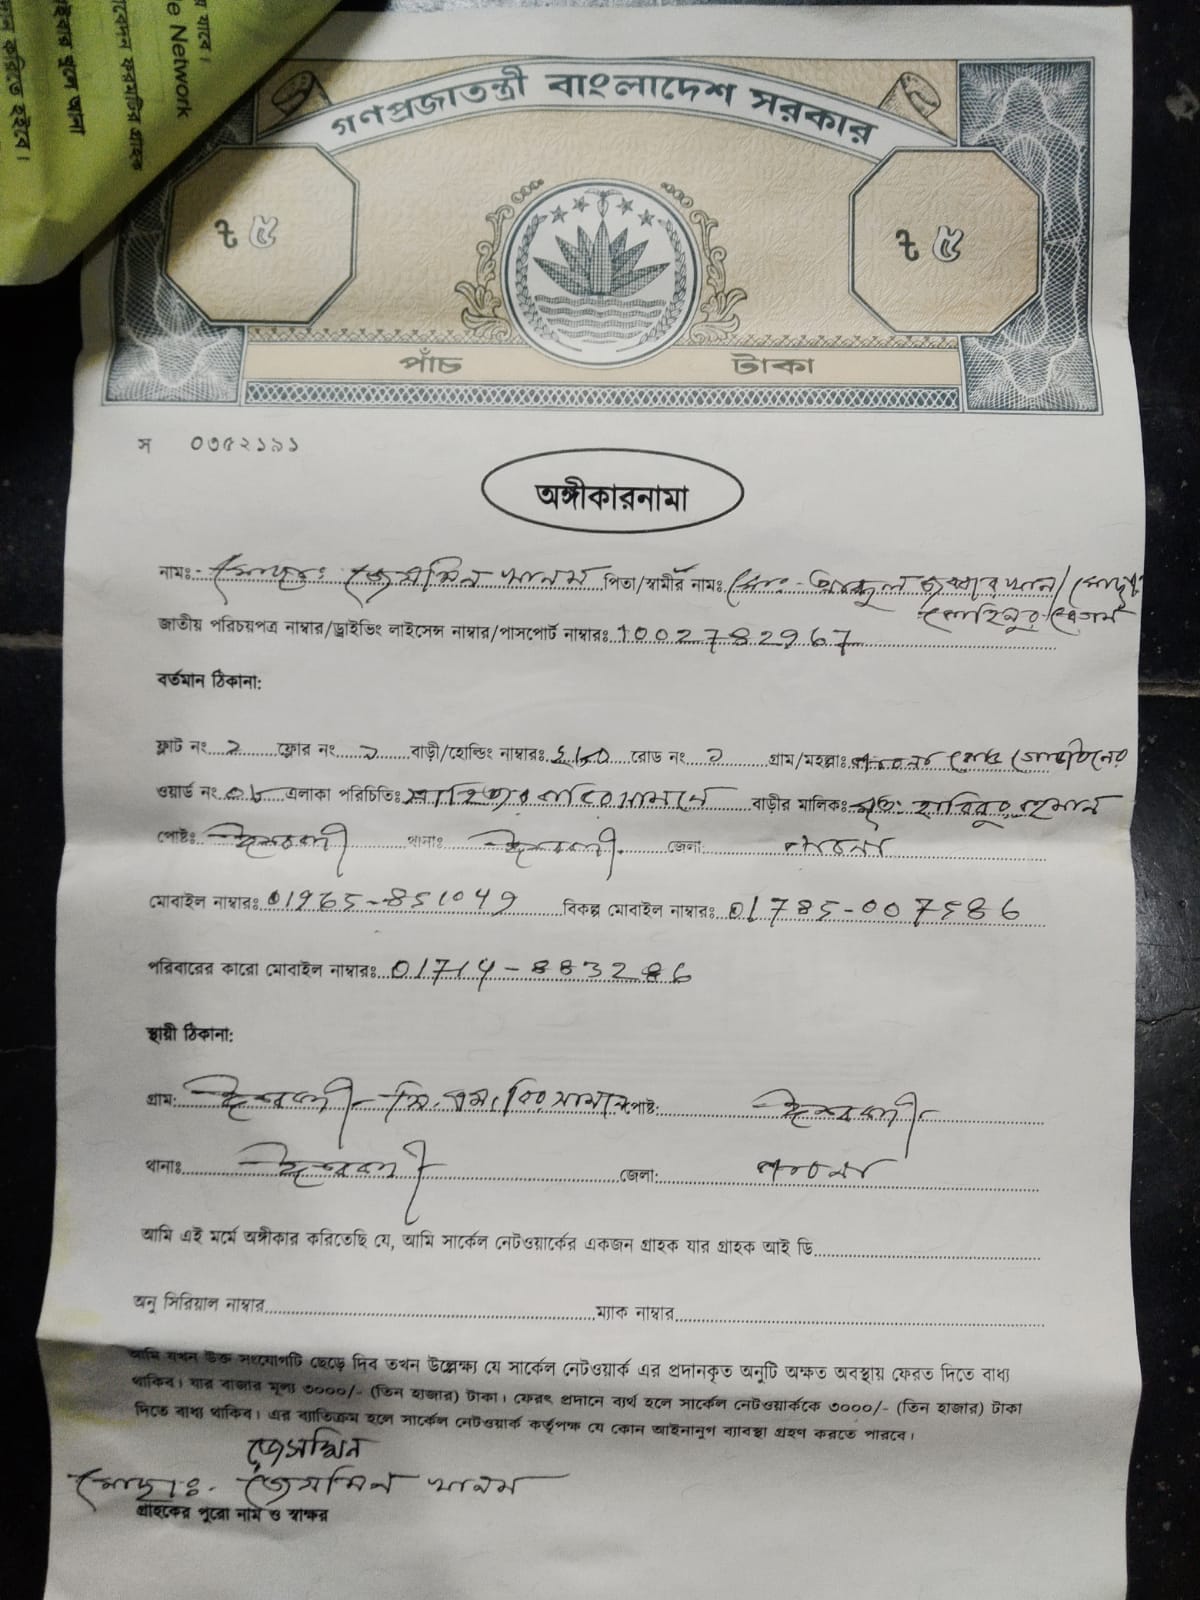 য় যাবে।
e Network
াবেদন ফরমটির গ্রাহক
গণপ্রজাতন্ত্রী বাংলাদেশ সরকার
৳ ৫
৳ ৫
পাঁচ টাকা
স ০৩৫২১৯১
অঙ্গীকারনামা
নামঃ- মোছাঃ জেসমিন খানম পিতা/স্বামীর নামঃ মোঃ- আব্দুল জব্বার খান/ মোছাঃ
কোহিনুর বেগম
জাতীয় পরিচয়পত্র নাম্বার/ড্রাইভিং লাইসেন্স নাম্বার/পাসপোর্ট নাম্বারঃ 1002782967
বর্তমান ঠিকানা:
ফ্লাট নং ২ ফ্লোর নং ১ বাড়ী/হোল্ডিং নাম্বারঃ রোড নং গ্রাম/মহল্লাঃ
ওয়ার্ড নং ০৮ এলাকা পরিচিতিঃ বাড়ীর মালিকঃ মৃত: হাবিবুর রহমান
পোষ্টঃ ঈশ্বরদী থানাঃ ঈশ্বরদী জেলা: পাবনা
মোবাইল নাম্বারঃ 01965-851049 বিকল্প মোবাইল নাম্বারঃ 01785-007586
পরিবারের কারো মোবাইল নাম্বারঃ 01714-883286
স্থায়ী ঠিকানা:
গ্রাম: ঈশ্বরদী পোষ্ট: ঈশ্বরদী
থানাঃ ঈশ্বরদী জেলা: পাবনা
আমি এই মর্মে অঙ্গীকার করিতেছি যে, আমি সার্কেল নেটওয়ার্কের একজন গ্রাহক যার গ্রাহক আই ডি
অনু সিরিয়াল নাম্বার ম্যাক নাম্বার
আমি যখন উক্ত সংযোগটি ছেড়ে দিব তখন উল্লেক্ষ্য যে সার্কেল নেটওয়ার্ক এর প্রদানকৃত অনুটি অক্ষত অবস্থায় ফেরত দিতে বাধ্য
থাকিব। যার বাজার মূল্য ৩০০০/- (তিন হাজার) টাকা। ফেরৎ প্রদানে ব্যর্থ হলে সার্কেল নেটওয়ার্ককে ৩০০০/- (তিন হাজার) টাকা
দিতে বাধ্য থাকিব। এর ব্যাতিক্রম হলে সার্কেল নেটওয়ার্ক কর্তৃপক্ষ যে কোন আইনানুগ ব্যাবস্থা গ্রহণ করতে পারবে।
জেসমিন
মোছাঃ- জেসমিন খানম
গ্রাহকের পুরো নাম ও স্বাক্ষর